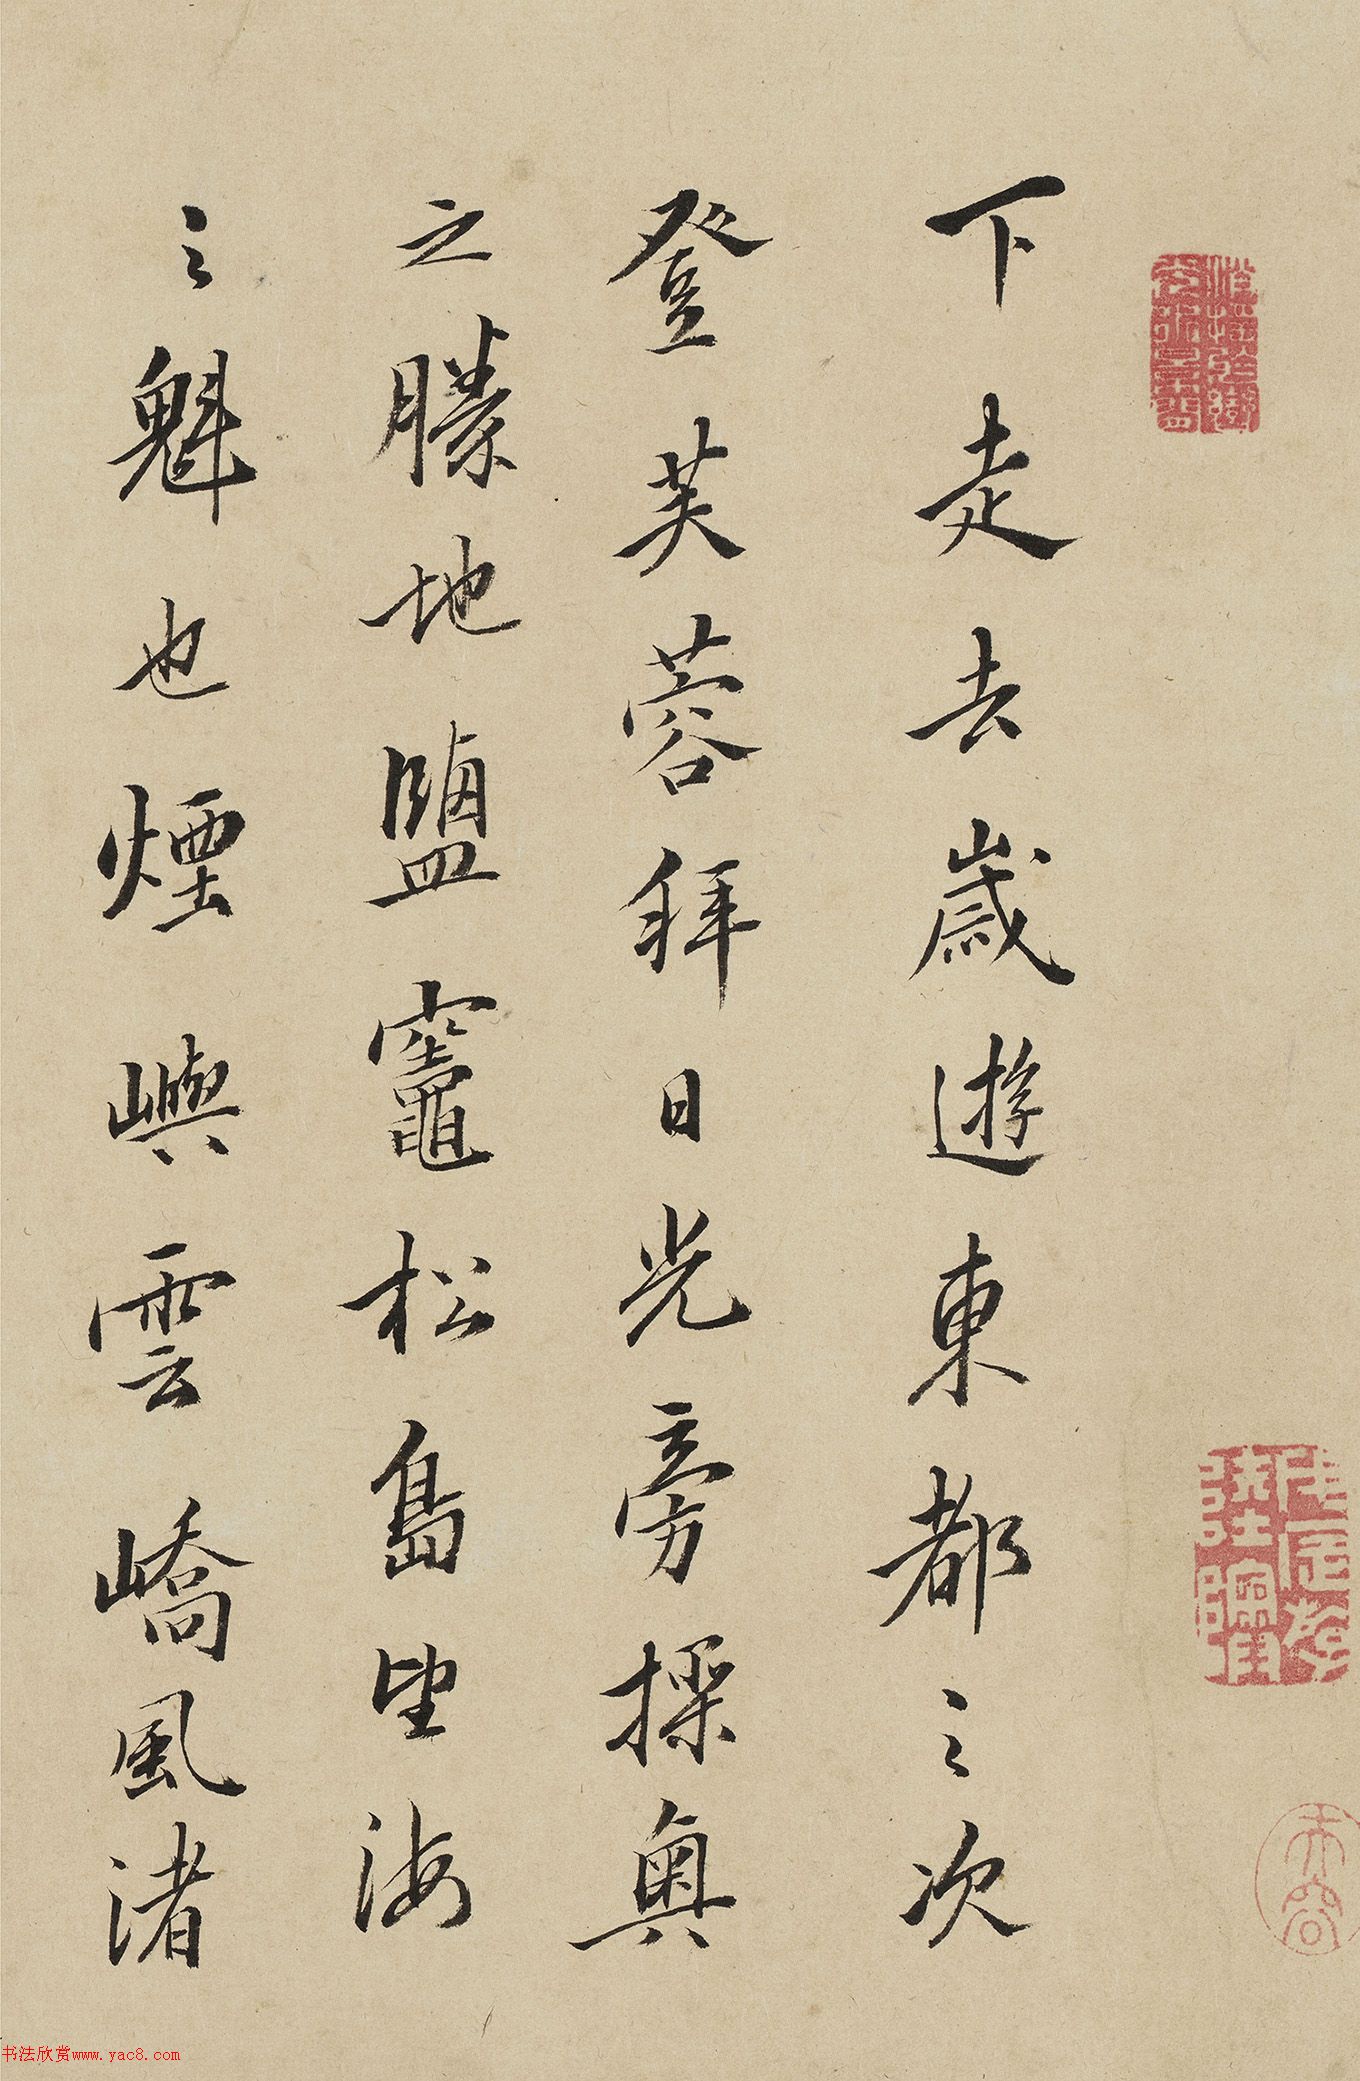 下走去歲遊東都之次
登芙蓉拜日光旁探奧
之勝地鹽竈松島望海
之魁也煙嶼雲嶠風渚
书法欣赏www.yac8.com